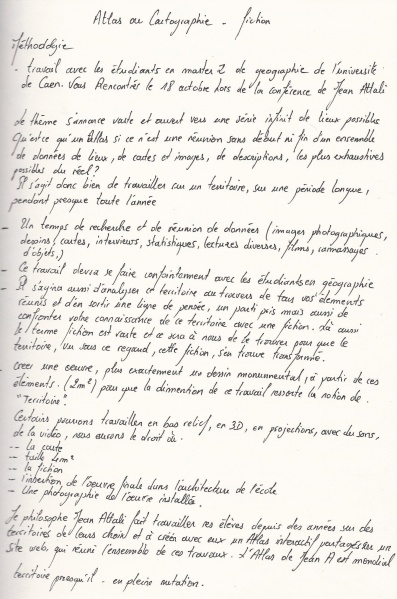 Atlas ou Cartographie - fiction
Méthodologie
- travail avec les étudiants en master 2 de geographie de l'université
de Caen. Vous Rencontrés le 18 octobre lors de la conférence de Jean Attali
de thème s'annonce vaste et ouvert vers une série infinit de lieux possibles
Qu'est ce qu'un Atlas si ce n'est une réunion sans début ni fin d'un ensemble
de données de lieux, de cartes et images, de descriptions, les plus exhaustives
possibles du réel?
Il s'agit donc bien de travailler sur un territoire, sur une période longue,
pendant presque toute l'année
- Un temps de recherche et de réunion de données (images photographiques,
dessins, cartes, interviews, statistiques, lectures diverses, films, ramassages
d'objets,)
- Ce travail devra se faire conjointement avec les étudiants en géographie
- Il s'agira aussi d'analyser ce territoire au travers de tous vos éléments
réunis et d'en sortir une ligne de pensée, un parti pris mais aussi de
confronter votre connaissance de ce territoire avec une fiction. Là aussi
le terme fiction est vaste et ce sera à nous de le trouver pour que le
territoire, vu sous ce regard, cette fiction, s'en trouve transformé.
- Créer une oeuvre, plus exactement un dessin monumental, à partir de ces
éléments. (2m²) pour que la dimention de ce travail ressorte la notion de
"Territoire".
Certains pourrons travailler en bas relief, en 3D, en projections, avec du sons,
de la vidéo, nous aurons le droit à.
-- la carte
-- taille 4m²
-- la fiction
- l'insertion de l'oeuvre finale dans l'architecture de l'école
- Une photographie de l'oeuvre installée.
Le philosophe Jean Attali fait travailler ses élèves depuis des années sur des
territoires de leurs choix et à créer avec eux un Atlas interactif partagé sur un
site web, qui réuni l'ensemble de ces travaux. L'Atlas de Jean A est mondial
territoire presqu'il - en pleine mutation.